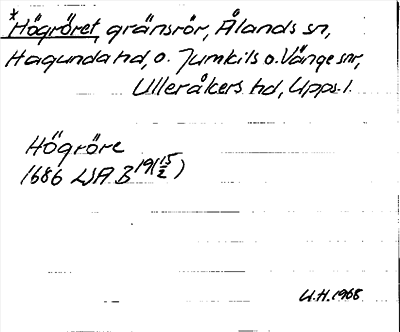 *Högröret, gränsrör, Ålands sn,
Hagunda hd, o. Jumkils o. Vänge snr,
Ulleråkers hd, Upps. l.
Högröre
1686 LSA B 19(15/2)
U.H. 1968